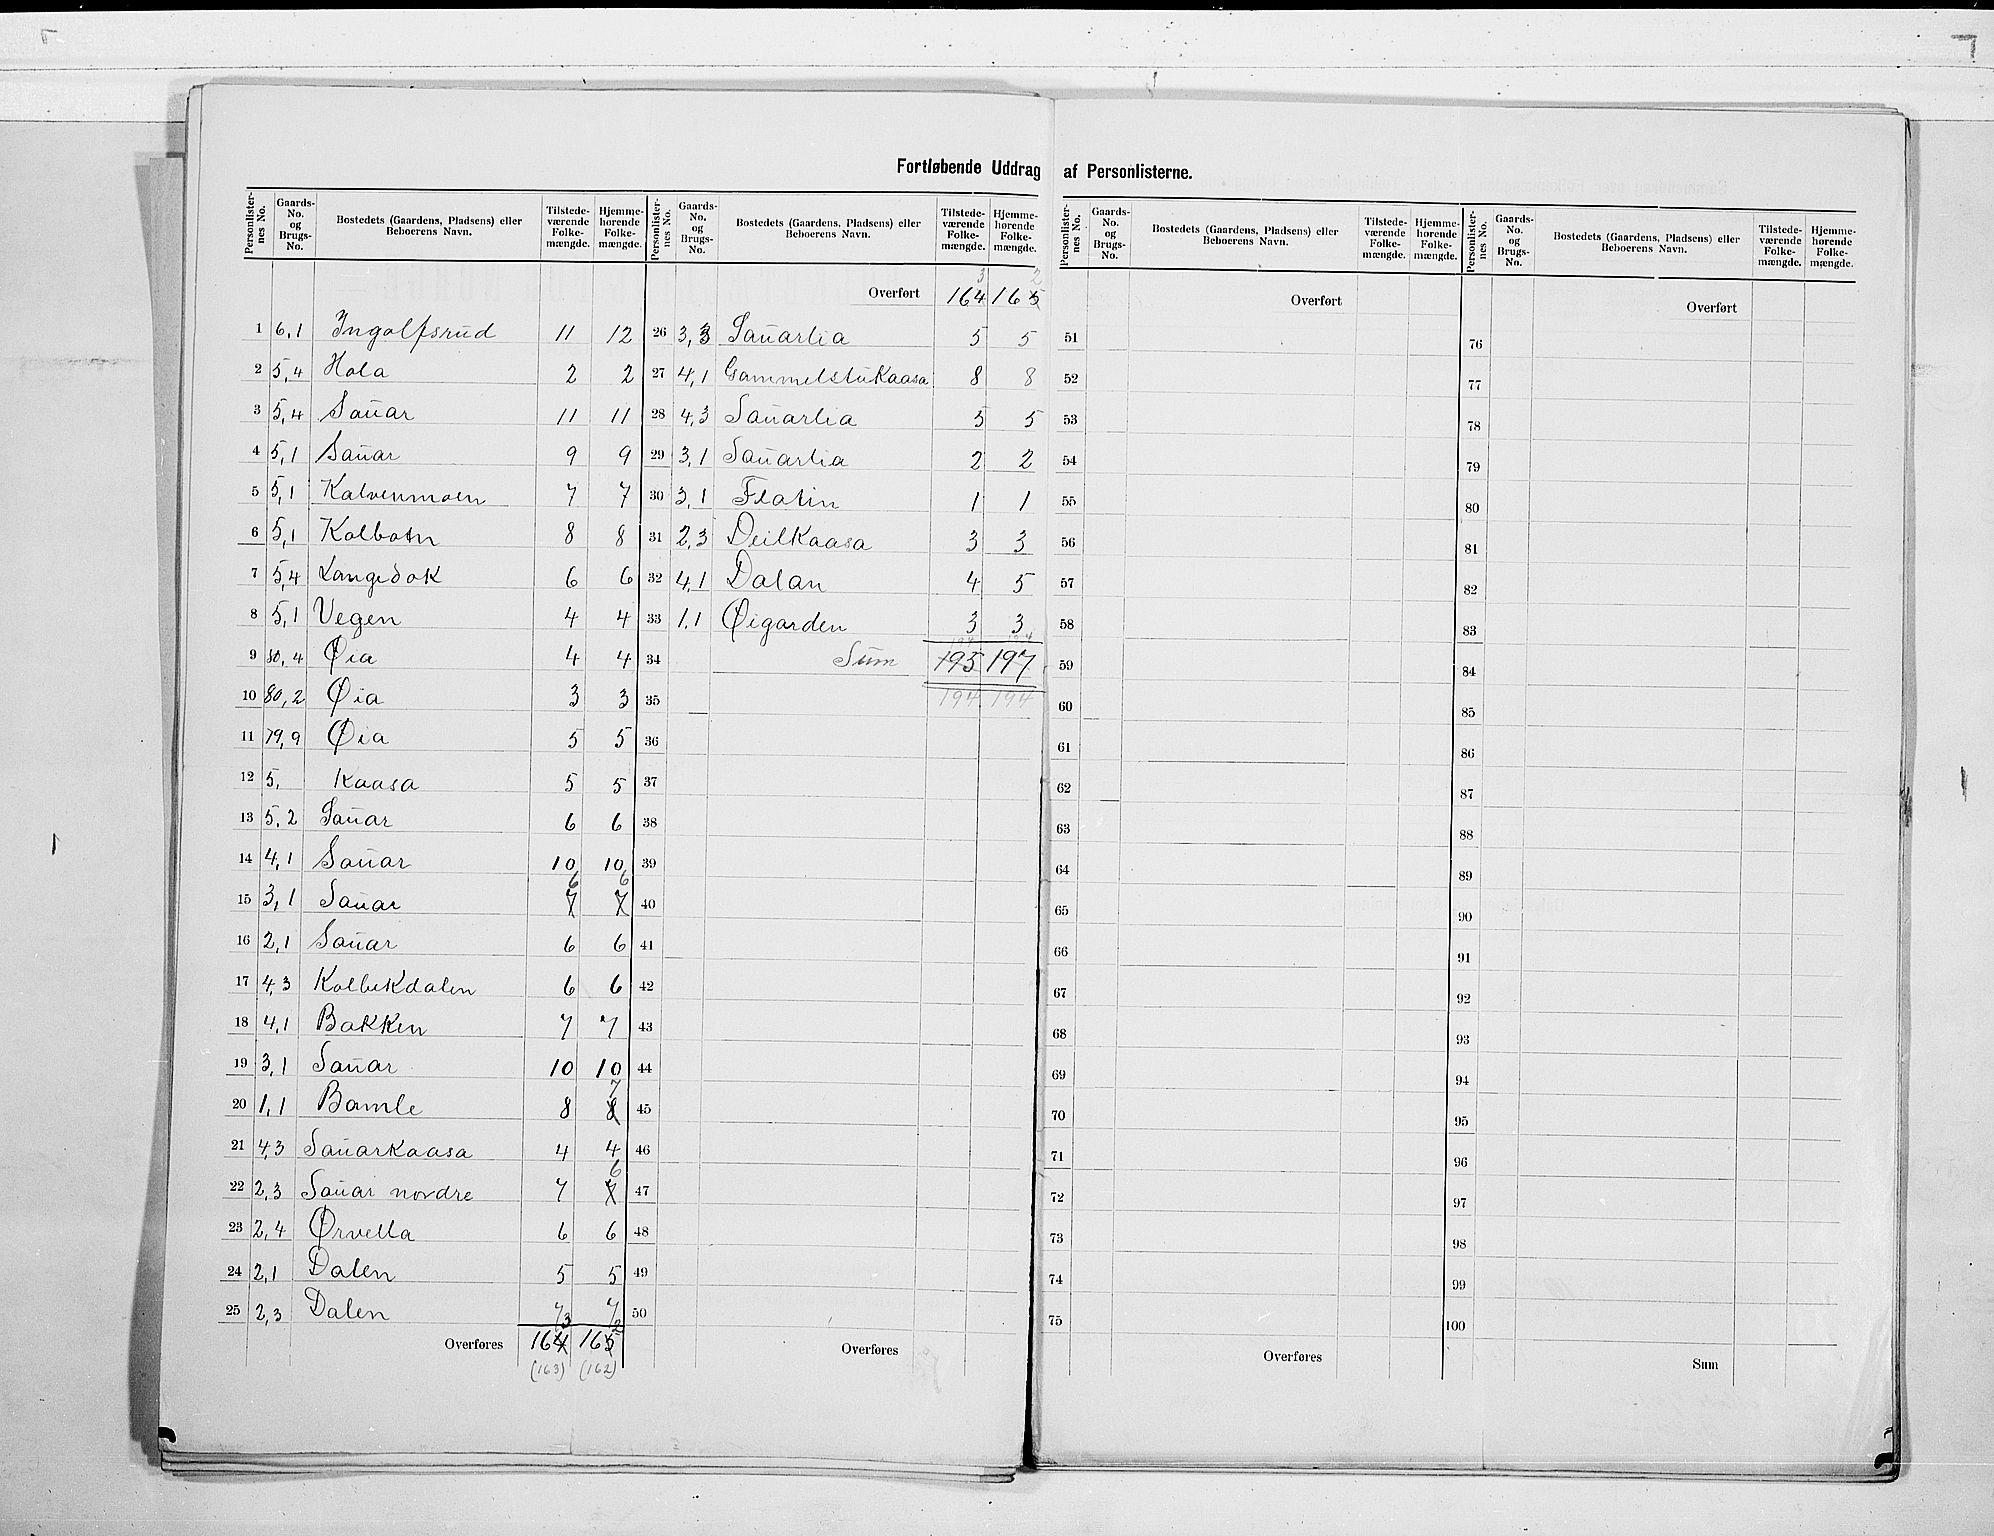 Fortløbende Uddrag af Personlisterne.
Personlister-nes No. Gaards-No. og Brugs-No. Bostedets (Gaardens, Pladsens) eller Beboerens Navn. Tilstede-værende Folke-mængde. Hjemme-hørende Folke-mængde.
1 6,1 Ingolfsrud 11 12
2 5,4 Hola 2 2
3 5,4 Sauar 11 11
4 5,1 Sauar 9 9
5 5,1 Kalvenmoen 7 7
6 5,1 Kolbotn 8 8
7 5,4 Langedok 6 6
8 5,1 Vegen 4 4
9 80,4 Øia 4 4
10 80,2 Øia 3 3
11 79,9 Øia 5 5
12 5, Kaasa 5 5
13 5,2 Sauar 6 6
14 4,1 Sauar 10 10
6 6
15 3,1 Sauar 7 7
16 2,1 Sauar 6 6
17 4,3 Kolbekdalen 6 6
18 4,1 Bakken 7 7
19 3,1 Sauar 10 10
7
20 1,1 Bamle 8 8
21 4,3 Sauarkaasa 4 4
6
22 2,3 Sauar nordre 7 7
23 2,4 Ørvella 6 6
24 2,1 Dalen 5 5
25 2,3 Dalen 7 7
3 2
Overføres 164 165
(163) (162)
Personlister-nes No. Gaards-No. og Brugs-No. Bostedets (Gaardens, Pladsens) eller Beboerens Navn. Tilstede-værende Folke-mængde. Hjemme-hørende Folke-mængde.
3 2
Overført 164 165
26 3,3 Sauarlia 5 5
27 4,1 Gammelstukaasa 8 8
28 4,3 Sauarlia 5 5
29 3,1 Sauarlia 2 2
30 3,1 Flatin 1 1
31 2,3 Deilkaasa 3 3
32 4,1 Dalan 4 5
33 1,1 Øigarden 3 3
194 194
34 Sum 195 197
194 194
35
36
37
38
39
40
41
42
43
44
45
46
47
48
49
50
Overføres
Personlister-nes No. Gaards-No. og Brugs-No. Bostedets (Gaardens, Pladsens) eller Beboerens Navn. Tilstede-værende Folke-mængde. Hjemme-hørende Folke-mængde.
Overført
51
52
53
54
55
56
57
58
59
60
61
62
63
64
65
66
67
68
69
70
71
72
73
74
75
Overføres
Personlister-nes No. Gaards-No. og Brugs-No. Bostedets (Gaardens, Pladsens) eller Beboerens Navn. Tilstede-værende Folke-mængde. Hjemme-hørende Folke-mængde.
Overført
76
77
78
79
80
81
82
83
84
85
86
87
88
89
90
91
92
93
94
95
96
97
98
99
100
Sum